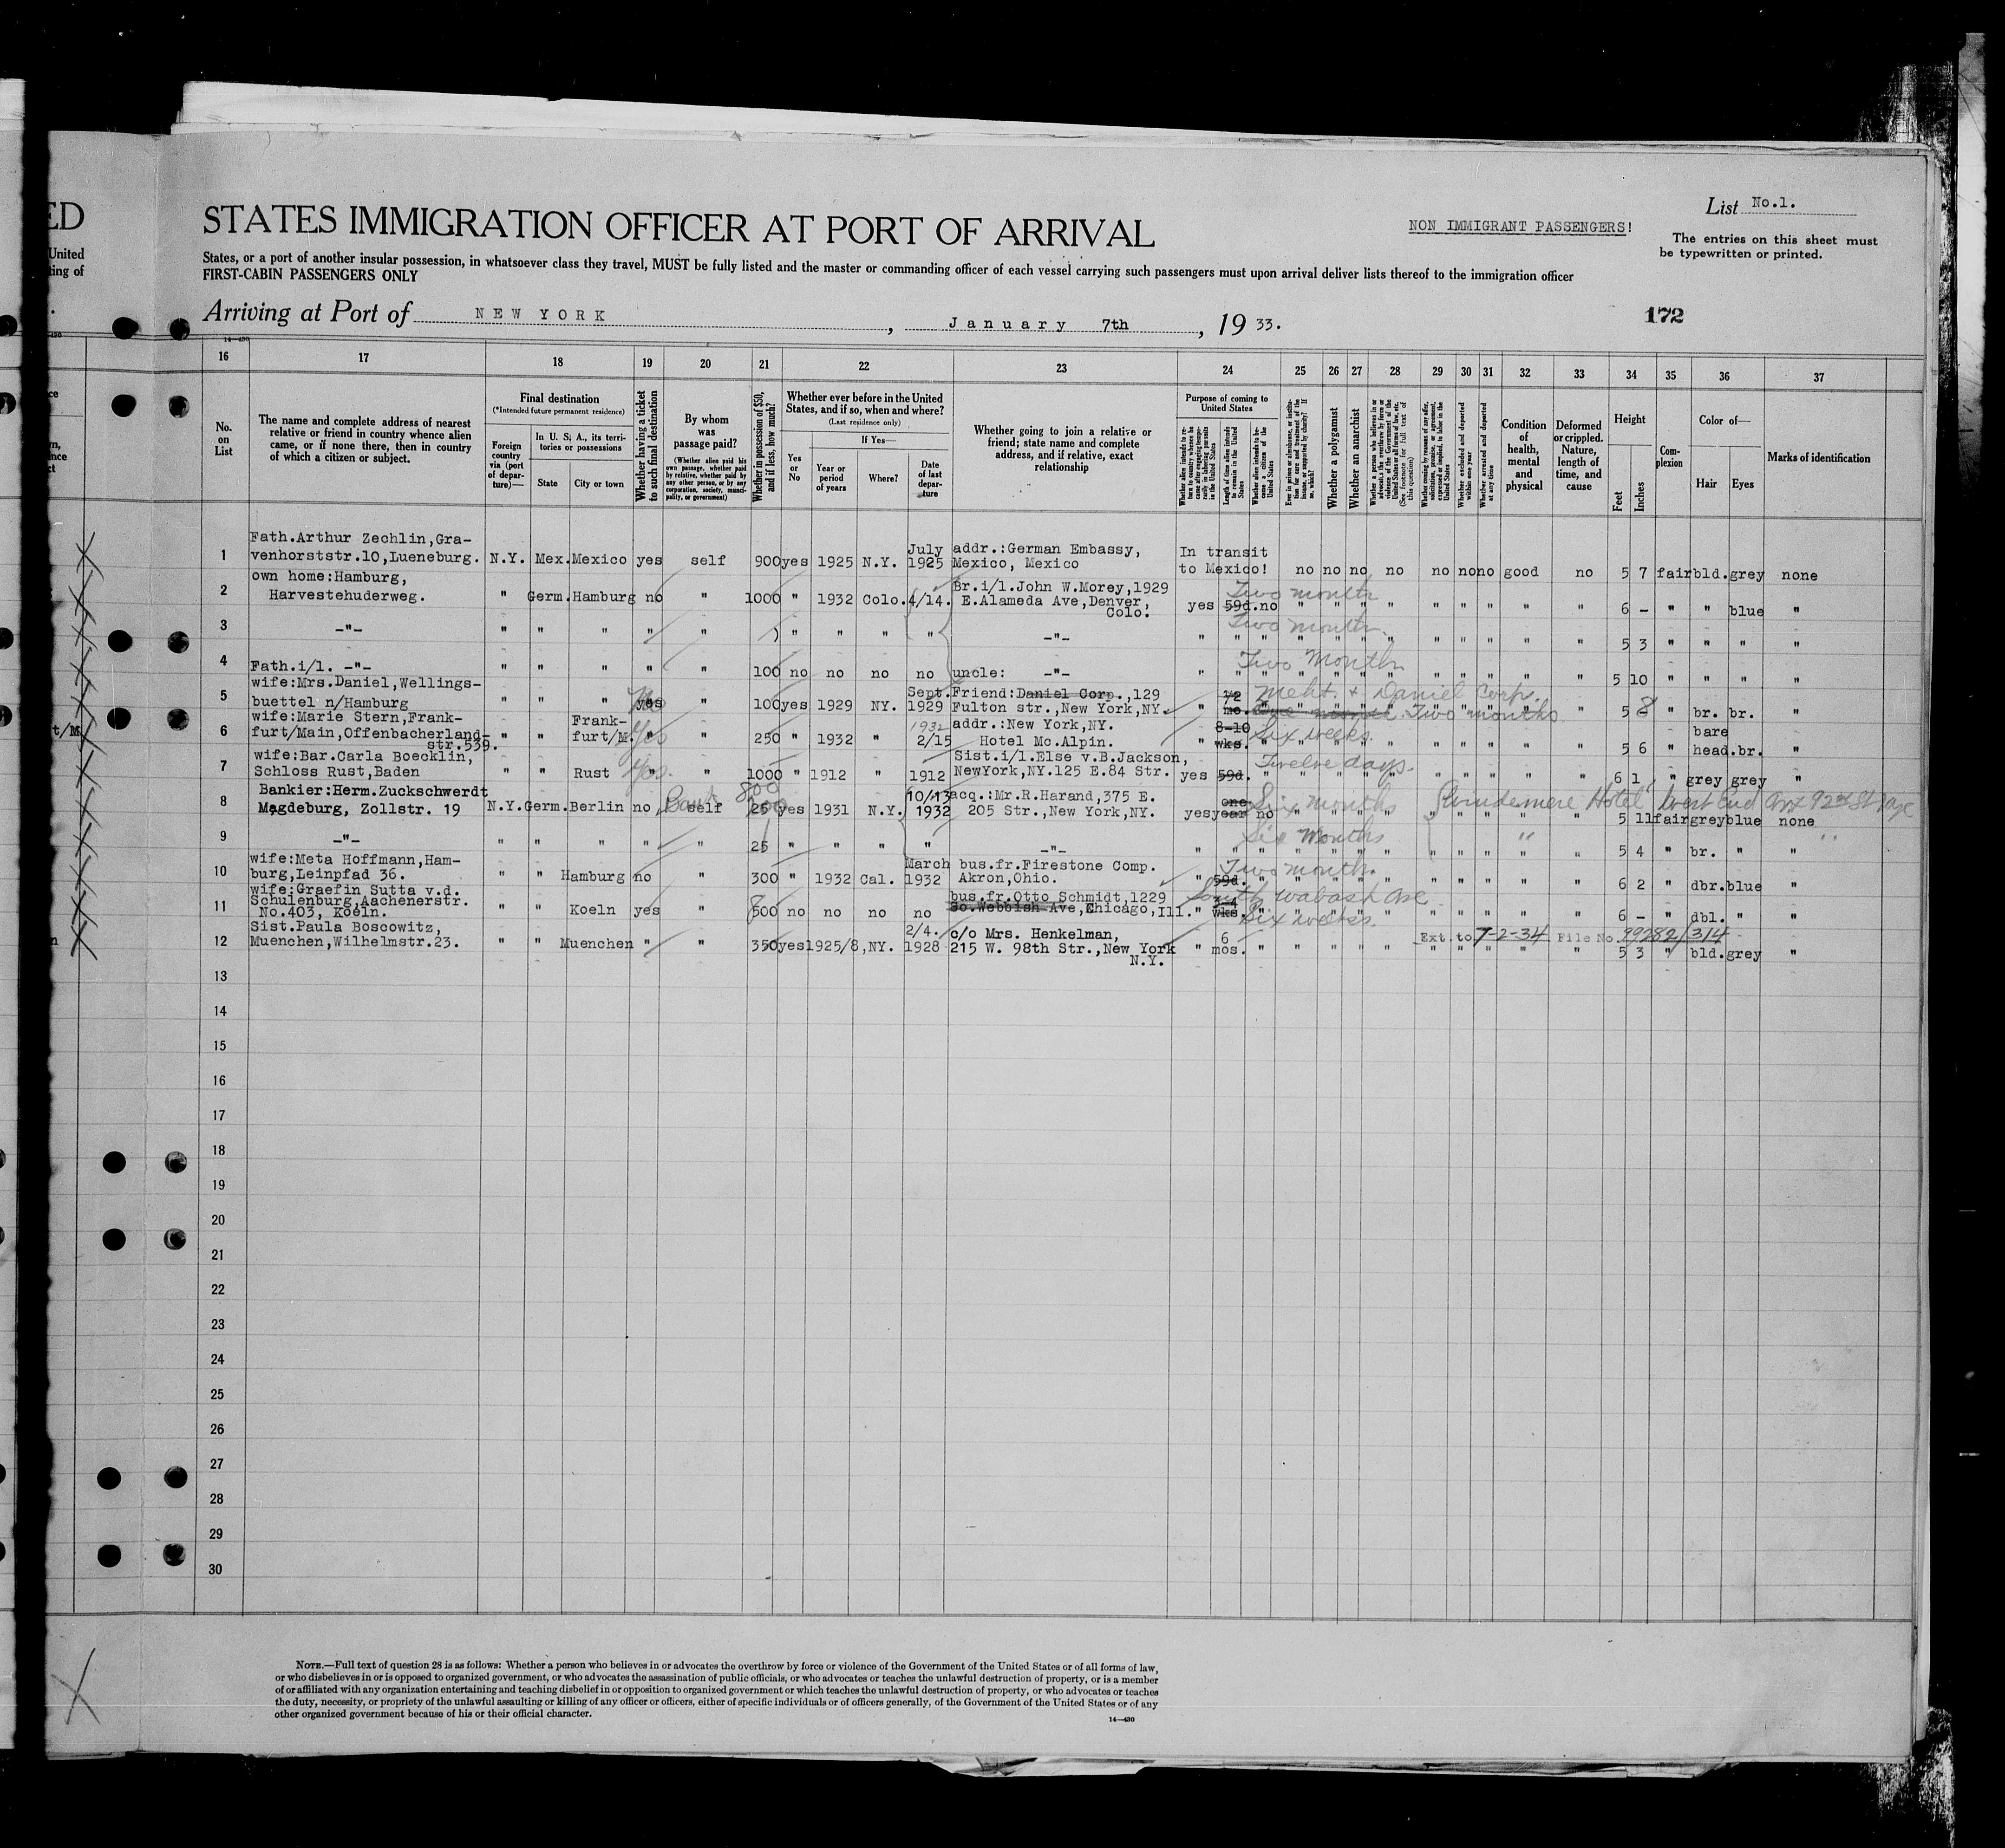 ED
United
ing of
STATES IMMIGRATION OFFICER AT PORT OF ARRIVAL
NON IMMIGRANT PASSENGERS!
List No.1.
The entries on this sheet must be typewritten or printed.
States, or a port of another insular possession, in whatsoever class they travel, MUST be fully listed and the master or commanding officer of each vessel carrying such passengers must upon arrival deliver lists thereof to the immigration officer
FIRST-CABIN PASSENGERS ONLY
Arriving at Port of NEW YORK, January 7th, 1933.
172
14—430
16 17 18 19 20 21 22 23 24 25 26 27 28 29 30 31 32 33 34 35 36 37
No. on List
The name and complete address of nearest relative or friend in country whence alien came, or if none there, then in country of which a citizen or subject.
Final destination
(*Intended future permanent residence)
Foreign country via (port of departure)—
In U. S. A., its territories or possessions
State
City or town
Whether having a ticket to such final destination
By whom was passage paid?
(Whether alien paid his own passage, whether paid by relative, whether paid by any other person, or by any corporation, society, municipality, or government)
Whether in possession of $50, and if less, how much?
Whether ever before in the United States, and if so, when and where?
(Last residence only)
Yes or No
If Yes—
Year or period of years
Where?
Date of last departure
Whether going to join a relative or friend; state name and complete address, and if relative, exact relationship
Purpose of coming to United States
Length of time alien intends to remain in the United States
Whether alien intends to become a citizen of the United States
Whether a polygamist
Whether an anarchist
(See footnote for full text of this question)
Whether excluded and deported within one year
Whether arrested and deported at any time
Condition of health, mental and physical
Deformed or crippled. Nature, length of time, and cause
Height
Feet
Inches
Complexion
Color of—
Hair
Eyes
Marks of identification
1 Fath.Arthur Zechlin,Gravenhorststr.10,Lueneburg. N.Y. Mex. Mexico yes self 900 yes 1925 N.Y. July 1925 addr.:German Embassy, Mexico, Mexico In transit to Mexico! no no no no no no no good no 5 7 fair bld. grey none
2 own home:Hamburg, Harvestehuderweg. " Germ. Hamburg no " 1000 " 1932 Colo. 4/14. Br.i/l.John W.Morey,1929 E.Alameda Ave,Denver, Colo. yes 59d. no Two months " " " " " " " " " 6 - " " blue "
3 -"- " " " " " ) " " " " -"- " " " Two months " " " " " " " " " 5 3 " " " "
4 Fath.i/l. -"- " " " " " 100 no no no no uncle: -"- " " " Two Months " " " " " " " " " 5 10 " " " "
5 wife:Mrs.Daniel,Wellingsbuettel n/Hamburg " " " yes " 100 yes 1929 NY. Sept. 1929 Friend:Daniel Corp.,129 Fulton str.,New York,NY. " mo. Meht. + Daniel Corp. Two months " " 5 8 " br. br. "
6 wife:Marie Stern,Frankfurt/Main,Offenbacherlandstr.539. " " Frankfurt/M. " Yes " 250 " 1932 " 1932 2/15 addr.:New York,NY. Hotel Mc.Alpin. " 8-10 wks. Six weeks. " " " " " " " " 5 6 " bare head. br. "
7 wife:Bar.Carla Boecklin, Schloss Rust,Baden " " Rust " Yes. " 1000 " 1912 " 1912 Sist.i/l.Else v.B.Jackson, NewYork,NY.125 E.84 Str. yes 59d. " Twelve days. " " " " " " " " " 6 1 " grey grey "
8 Bankier:Herm.Zuckschwerdt Magdeburg, Zollstr. 19 N.Y. Germ. Berlin no self 25 800 yes 1931 N.Y. 10/13 1932 acq.:Mr.R.Harand,375 E. 205 Str.,New York,NY. yes one year no Six months Hotel West End 92nd St " " " " " " " " " 5 11 fair grey blue none
9 -"- " " " " " 25 " " " " -"- " " " Six Months " " " " " " " " " 5 4 " br. " "
10 wife:Meta Hoffmann,Hamburg,Leinpfad 36. " " Hamburg no " 300 " 1932 Cal. March 1932 bus.fr.Firestone Comp. Akron,Ohio. " 59d. " Two months. " " " " " " " " " 6 2 " dbr. blue "
11 wife:Graefin Sutta v.d. Schulenburg,Aachenerstr. No.403, Koeln. " " Koeln yes " 500 no no no no bus.fr.Otto Schmidt,1229 So.Webbish Ave,Chicago,Ill. South Wabash Ave " 3-4 wks. Six weeks. " " " " " " " " 6 - " dbl. " "
12 Sist.Paula Boscowitz, Muenchen,Wilhelmstr.23. " " Muenchen " " 350 yes 1925/8, NY. 2/4. 1928 c/o Mrs. Henkelman, 215 W. 98th Str.,New York N.Y. " 6 mos. " " " " " Ext. to 7-2-34 File No. 99282/314 " " " " " 5 3 " bld. grey "
13
14
15
16
17
18
19
20
21
22
23
24
25
26
27
28
29
30
NOTE.—Full text of question 28 is as follows: Whether a person who believes in or advocates the overthrow by force or violence of the Government of the United States or of all forms of law,
or who disbelieves in or is opposed to organized government, or who advocates the assassination of public officials, or who advocates or teaches the unlawful destruction of property, or is a member
of or affiliated with any organization entertaining and teaching disbelief in or opposition to organized government or which teaches the unlawful destruction of property, or who advocates or teaches
the duty, necessity, or propriety of the unlawful assaulting or killing of any officer or officers, either of specific individuals or of officers generally, of the Government of the United States or of any
other organized government because of his or their official character.
14—430